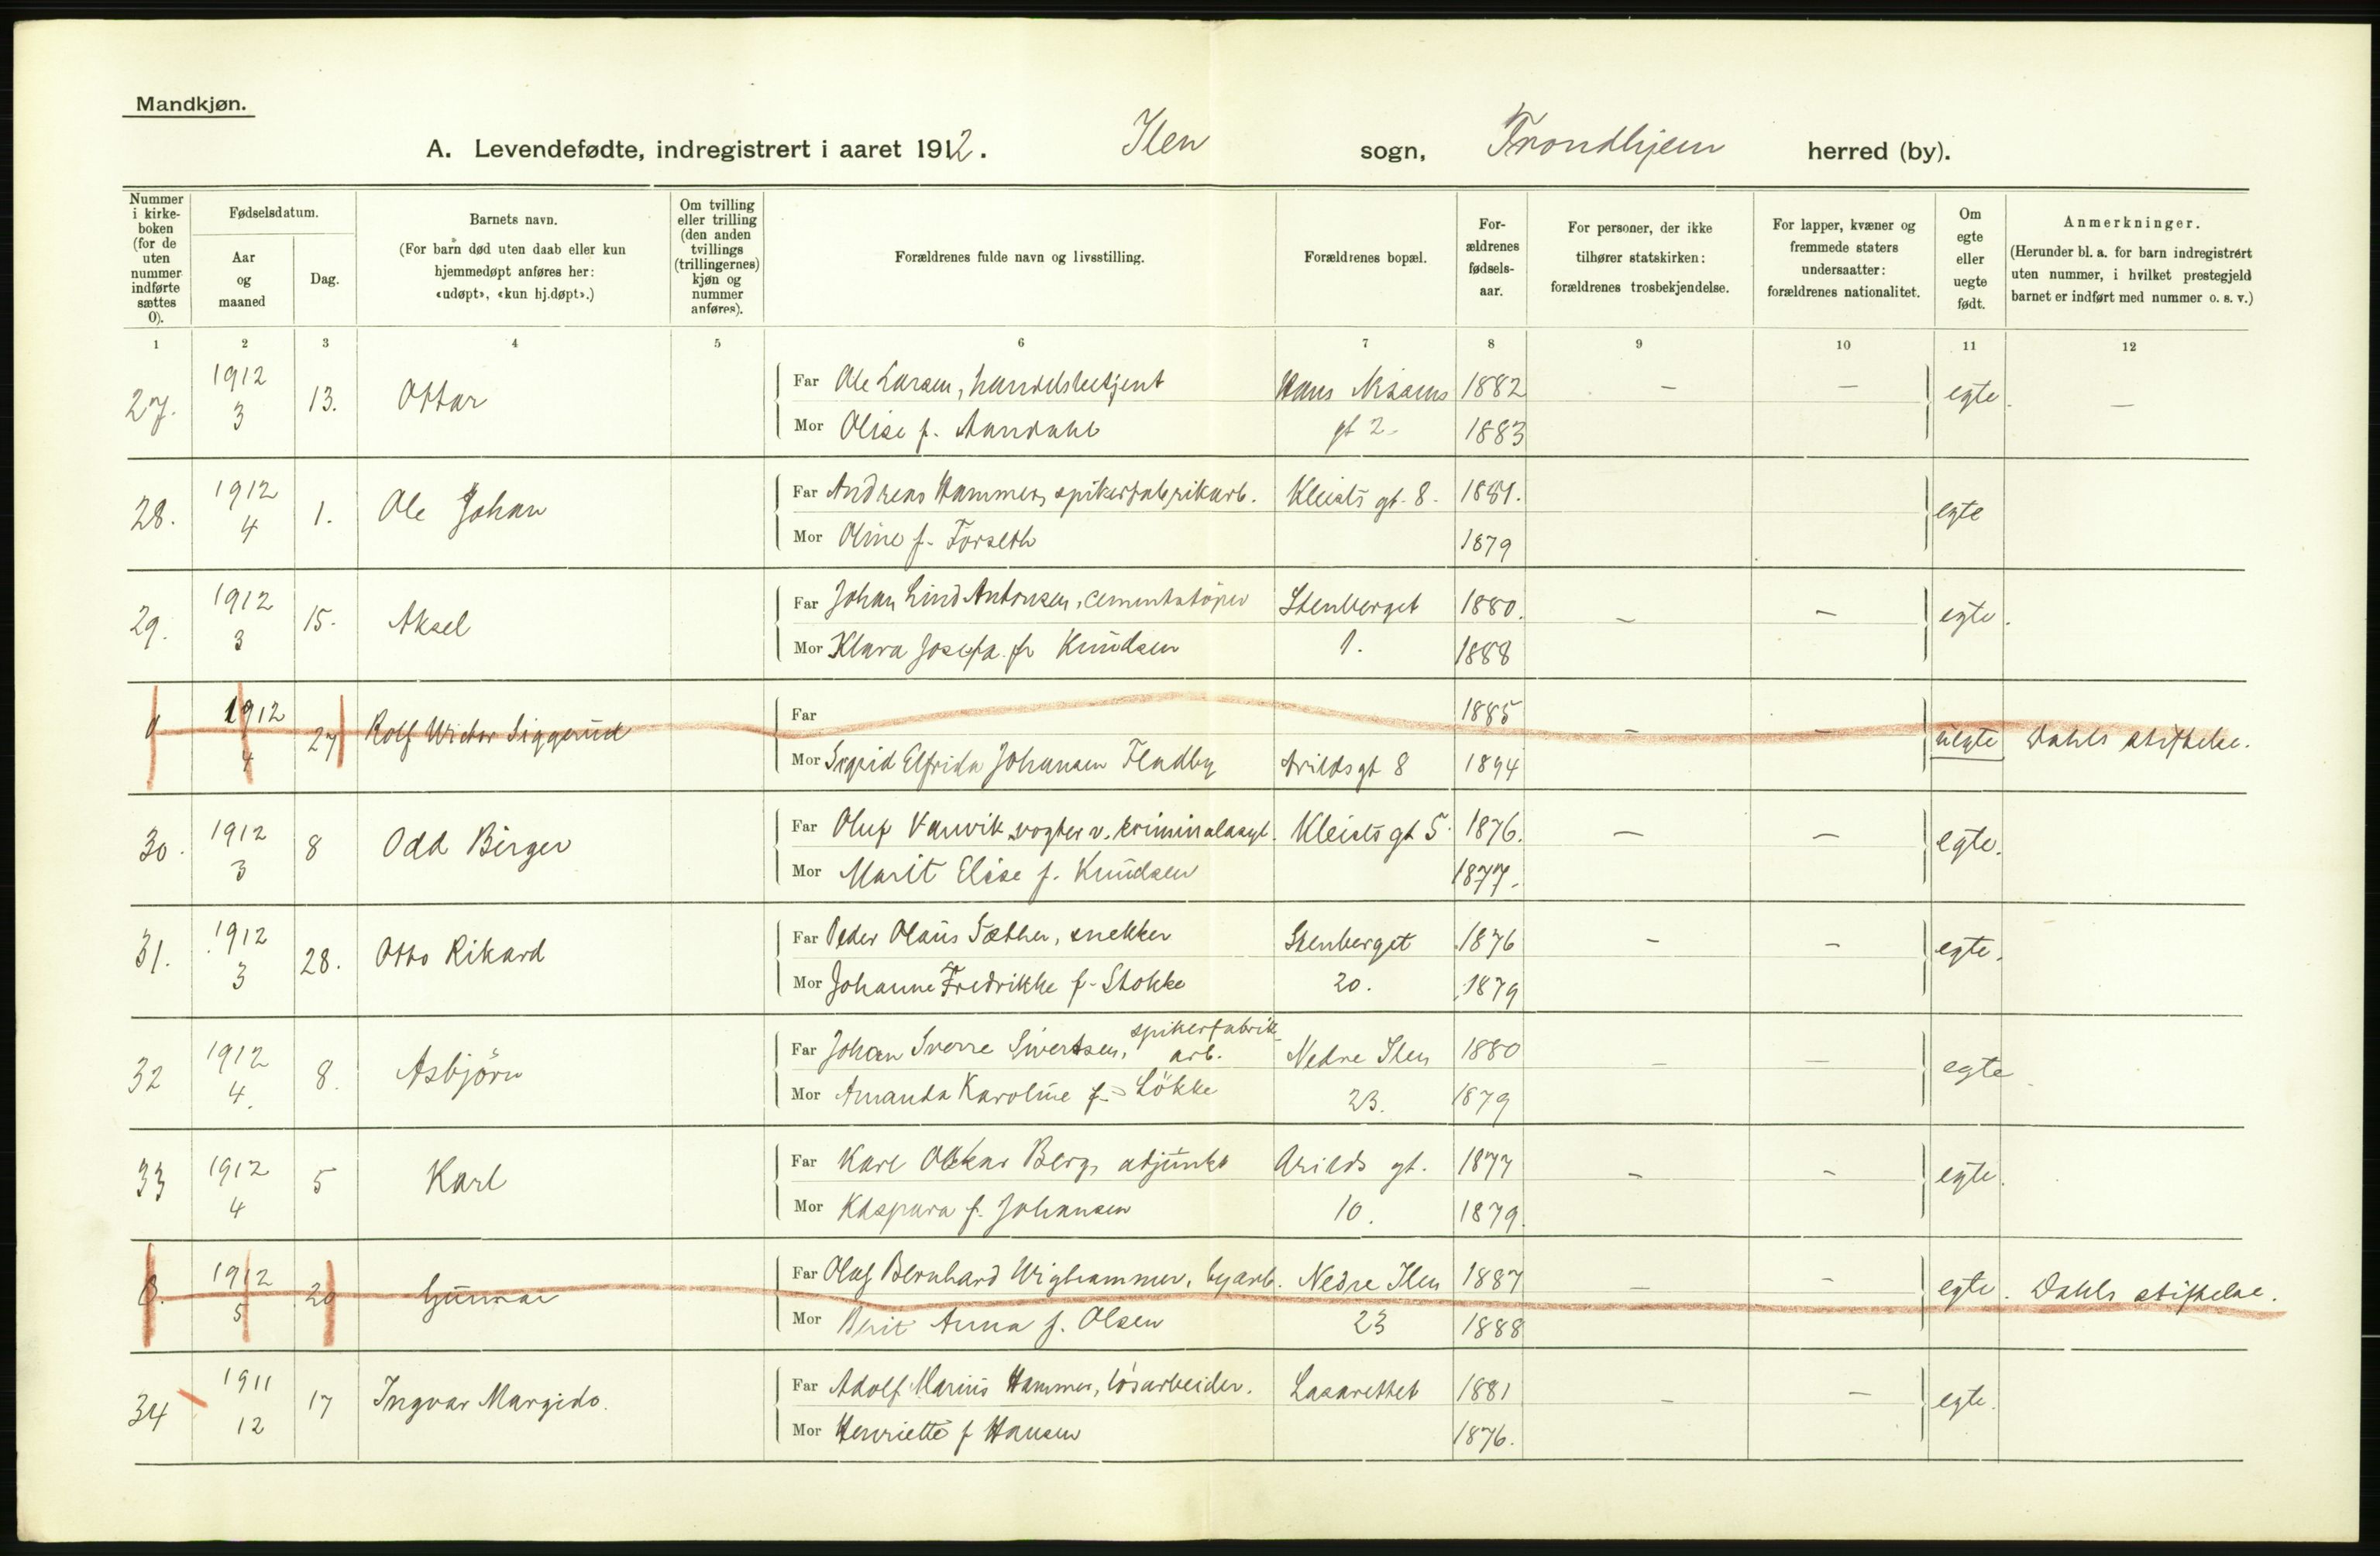 Mandkjøn.
A. Levendefødte, indregistrert i aaret 1912. Ilen sogn, Trondhjem herred (by).
Nummer i kirke-boken (for de uten nummer indførte sættes 0).
Fødselsdatum.
Aar og maaned
Dag.
Barnets navn.
(For barn død uten daab eller kun hjemmedøpt anføres her: «udøpt», «kun hj.døpt».)
Om tvilling eller trilling (den anden tvillings (trillingernes) kjøn og nummer anføres).
Forældrenes fulde navn og livsstilling.
Forældrenes bopæl.
For-ældrenes fødsels-aar.
For personer, der ikke tilhører statskirken: forældrenes trosbekjendelse.
For lapper, kvæner og fremmede staters undersaatter: forældrenes nationalitet.
Om egte eller uegte født.
Anmerkninger.
(Herunder bl. a. for barn indregistrért uten nummer, i hvilket prestegjeld barnet er indført med nummer o. s. v.)
1 2 3 4 5 6 7 8 9 10 11 12
27. 1912 3 13. Ottar
Far Ole Larsen, handelsbetjent Hans Nissens 1882 — — egte. —
Mor Olise f. Aandahl gt 2 1883
28. 1912 4 1. Ole Johan
Far Andreas Hammer, spikerfabrikarb. Kleists gt. 8. 1881. egte
Mor Oline f. Forseth 1879
29. 1912 3 15. Aksel
Far Johan Lind Antonsen, cementstøper Stenberget 1880. — — egte.
Mor Klara Josefa f. Knudsen 1. 1888
0 1912 4 27 Rolf Victor Siggerud
Far 1885 — — uegte Dahls stiftelse.
Mor Sigrid Elfrida Johansen Fladby Arilds gt 8 1894
30. 1912 3 8 Odd Birger
Far Oluf Vanvik, vogter v. kriminalasyl. Kleists gt 5. 1876. — — egte.
Mor Marit Elise f. Knudsen 1877.
31. 1912 3 28. Otto Rikard
Far Peder Olaus Sæther, snekker Stenberget 1876 — — egte.
Mor Johanne Fredrikke f. Stokke 20. 1879
32 1912 4. 8. Asbjörn
Far Johan Sverre Sivertsen, spikerfabrik-arb. Nedre Ilen 1880 — — egte
Mor Amanda Karoline f. Lökke 23. 1879
33 1912 4 5 Karl
Far Karl Oskar Berg, adjunkt Arilds gt. 1877 — — egte.
Mor Kaspara f. Johansen 10. 1879.
0. 1912 5 20 Gunnar
Far Olaf Bernhard Wighammer, byarb. Nedre Ilen 1887 — — egte. Dahls stiftelse.
Mor Berit Anna f. Olsen 23 1888
34 1911 12 17 Ingvar Margido.
Far Adolf Marius Hammer, løsarbeider. Lasarettet 1881 — — egte.
Mor Henriette f Hansen 1876.